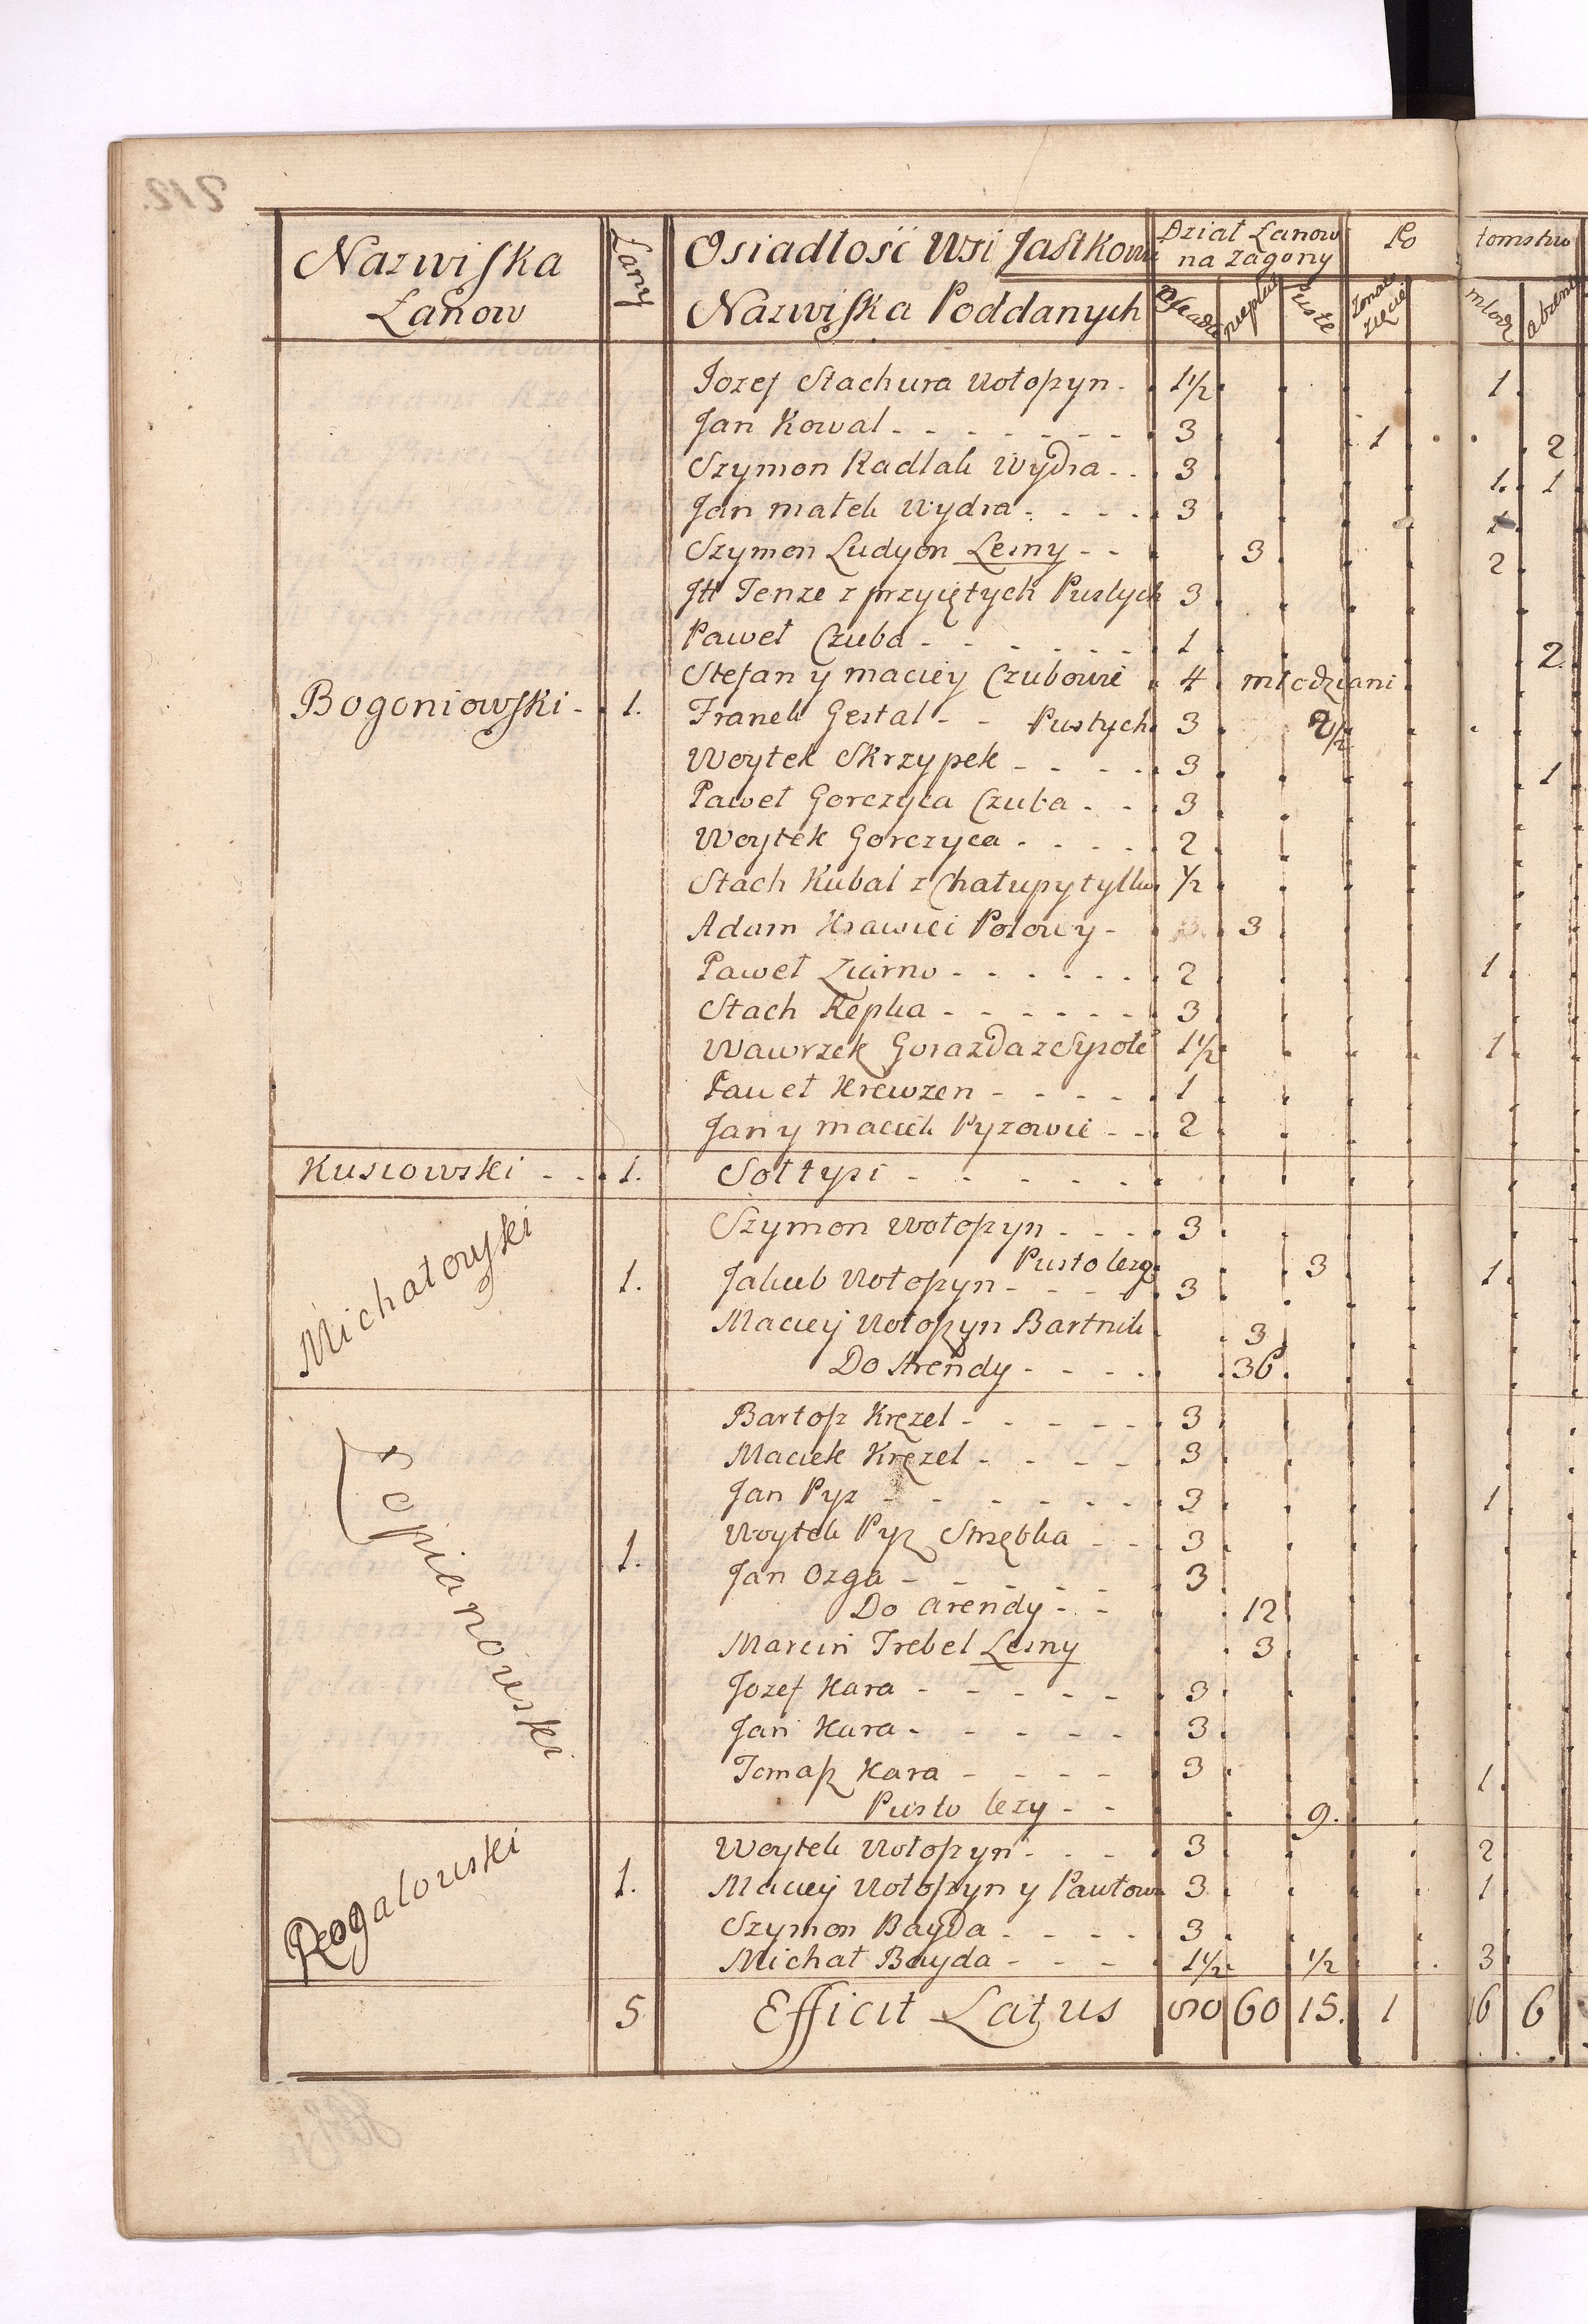 Nazwiska Łanow | Łany | Osiadłość Wsi Jastkow | Dział Łanow na zagony | Po | tomstwo
Nazwiska Poddanych | Puste | mlodz
Jozef Stachura Wołoszyn - 1½ 1
Jan Kowal - 3 1 2
Szymon Radlak Wydra - 3 1. 1
Jan małek Wydra - 3
Szymon Ludyon Lesny - 3 2
Itt Tenze z przyiętych Pustych 3
Paweł Czuba - 1 2
Stefan y maciey Czubowie 4 młodziani
Bogoniowski - 1. Franek Gestal - Pustych 3
Woytek Skrzypek - 3 1
Paweł Gorczyca Czuba - 3
Woytek Gorczyca - 2
Stach Kubal z Chałupy tylko ½
Adam Krawiec Polowy - 3
Paweł Ziarno - 2 1
Stach Repka - 3
Wawrzek Gorazda z Syrote 1½ 1
Paweł Krewzen - 1
Jan y maciek Pyzowie - 2
Kusiowski - 1. Sołtysi
Szymon Wołoszyn - 3
Pusto lezy 3
Michałowski 1. Jakub Wołoszyn - 3 1
Maciey Wołoszyn Bartnik 3
Do Arendy - 36
Bartosz Kręzel - 3
Maciek Kręzel - 3
Jan Pyz - 3 1
Łopianowski 1. Woytek Pyz Strzębka - 3
Jan Ozga - 3
Do Arendy - 12
Marcin Trebel Lesny 3
Jozef Kara - 3
Jan Kara - 3
Tomasz Kara - 3 1
Pusto lezy - 9.
Woytek Wołoszyn - 3 2
Rogalowski 1. Maciey Wołoszyn y Pawłow 3 1
Szymon Bayda - 3
Michał Bayda - 1½ ½ 3
5 Efficit Latus 60 15. 1 16 6
212.